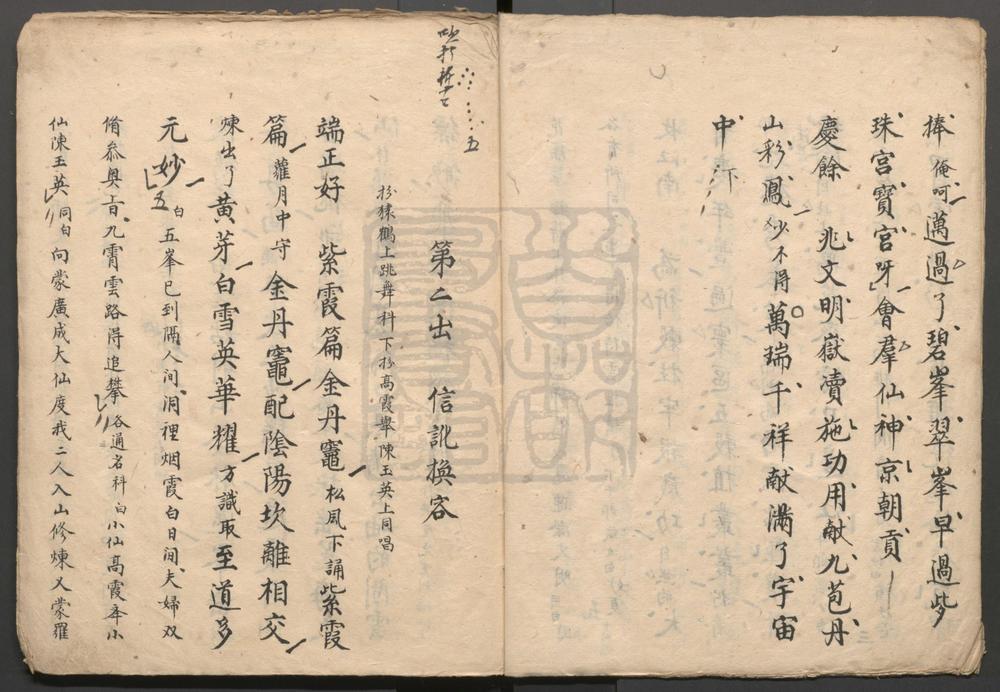 捧俺呵邁過了碧峯翠峯早過些
珠宮寶宮呀會羣仙神京朝貢
慶餘　兆文明嶽瀆施功用献九苞丹
山彩鳳少不得萬瑞千祥献滿了宇宙
中
吹打
五
第二出　信訛換容
扮猿鶴上跳舞科下扮高霞舉陳玉英上同唱
端正好　紫霞篇金丹竈松風下誦紫霞
篇蘿月中守金丹竈配陰陽坎離相交
煉出了黃芽白雪英華耀方識取至道多
元妙白五峯已到隔人間洞裡烟霞白日間夫婦双
五
脩叅奥旨九霄雲路得追攀各通名科白小仙高霞舉小
仙陳玉英同白向蒙廣成大仙度我二人入山修煉又蒙羅